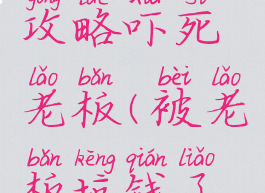 gōng lüè xià sǐ
攻略吓死
lǎo bǎn bèi lǎo
老板(被老
bǎn kēng qián liǎo
板坑钱了